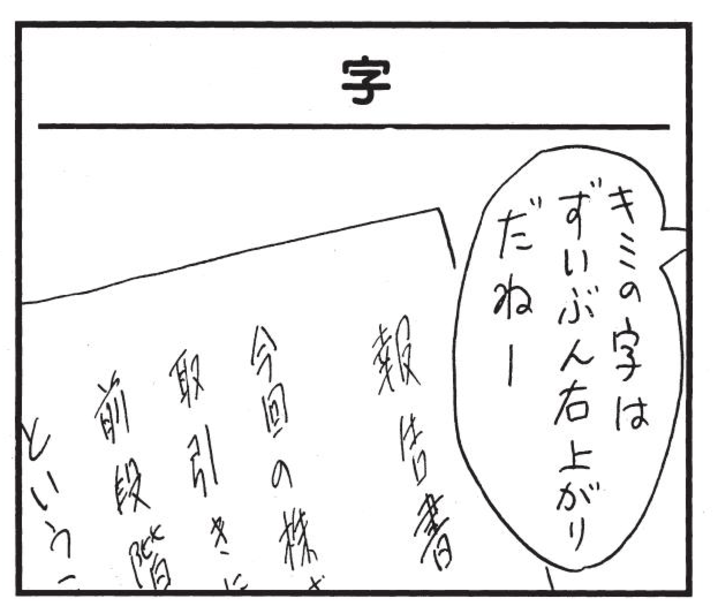 字
キミの字は
ずいぶん右上がり
だねー
報告書
今回の株
取引きに
前段階
という